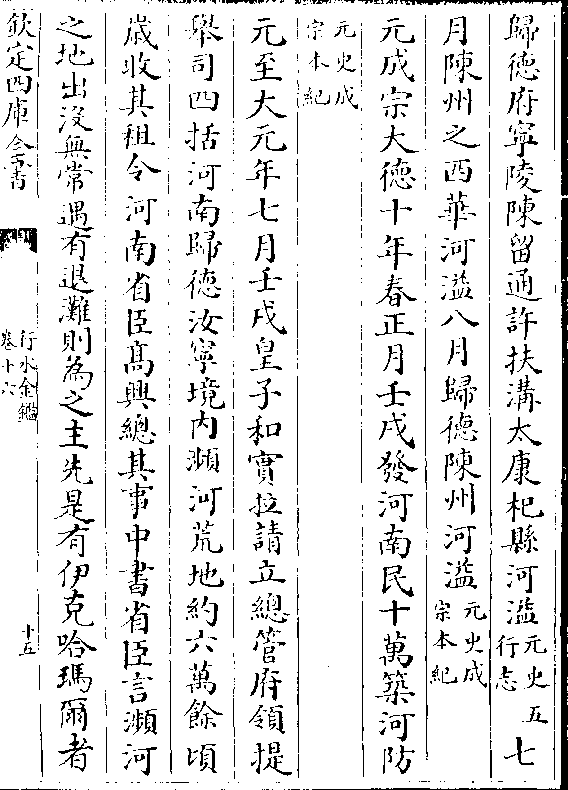 歸德府寧陵陳留通許扶溝太康杞縣河溢元史五行志七
月陳州之西華河溢八月歸德陳州河溢元史成宗本紀
元成宗大德十年春正月壬戌發河南民十萬築河防
元史成宗本紀
元至大元年七月壬戌皇子和實拉請立總管府領提
舉司四括河南歸德汝寧境內瀕河荒地約六萬餘頃
歲收其租令河南省臣高興總其事中書省臣言瀕河
之地出沒無常遇有退灘則為之主先是有伊克哈瑪爾者
欽定四庫全書
行水金鑑
卷十六
十五